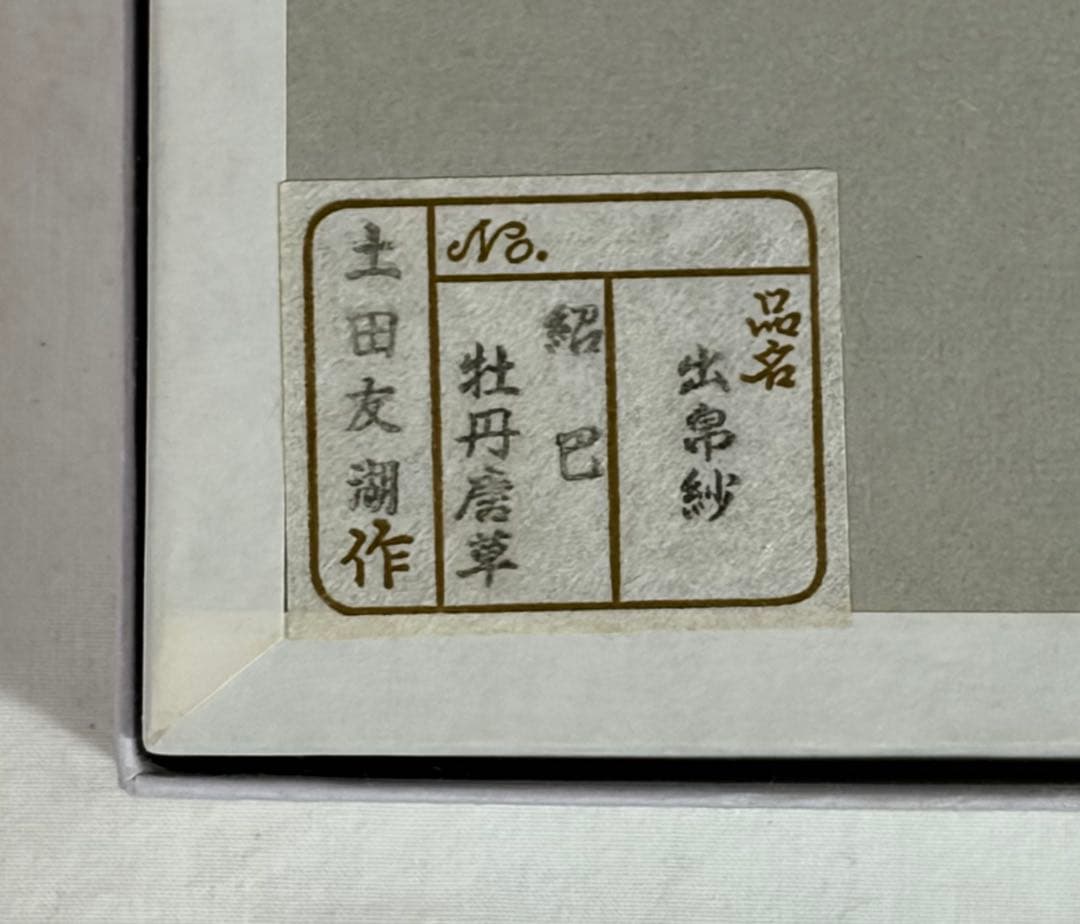 No.
品名
出帛紗
紹巴
牡丹唐草
土田友湖作